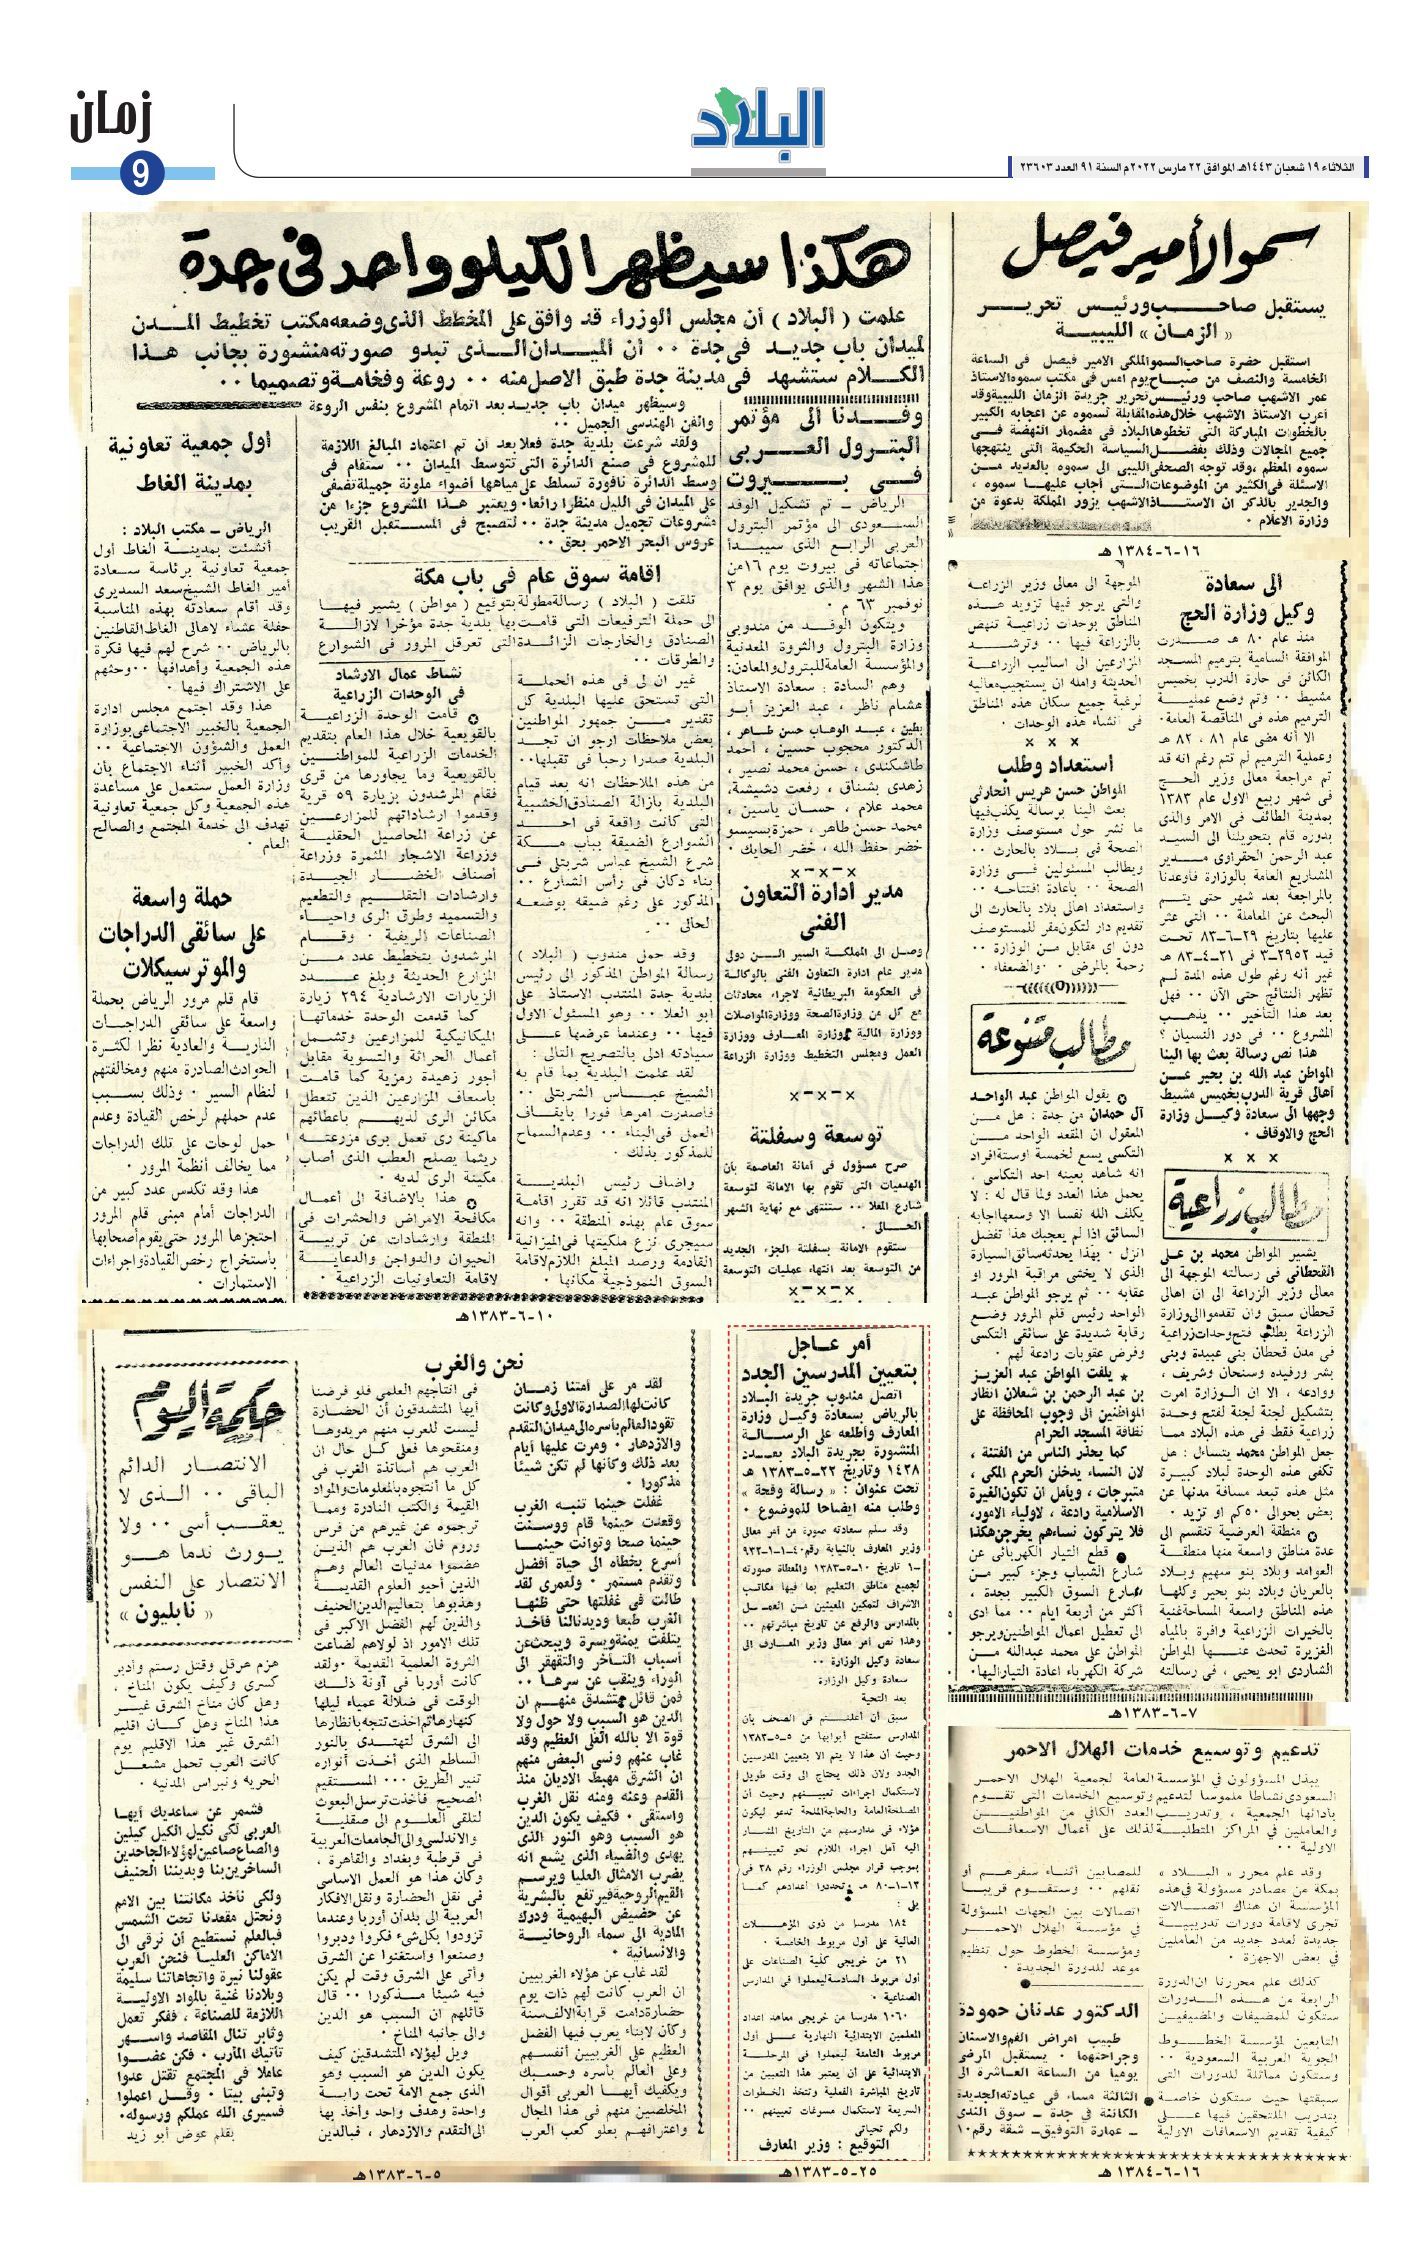 الثلاثاء ١٩ شعبان ١٤٤٣هـ الموافق ٢٢ مارس ٢٠٢٢م السنة ٩١ العدد ٢٣٦٠٣
البلاد
زمان
9
سمو الأمير فيصل
يستقبل صاحب ورئيس تحرير
« الزمان » الليبية
استقبل حضرة صاحب السمو الملكي الامير فيصل في الساعة
الخامسة والنصف من صباح يوم امس في مكتب سموه الاستاذ
عمر الاشهب صاحب ورئيس تحرير جريدة الزمان الليبية وقد
أعرب الاستاذ الاشهب خلال هذه المقابلة لسموه عن اعجابه الكبير
بالخطوات المباركة التي تخطوها البلاد في مضمار النهضة في
جميع المجالات وذلك بفضل السياسة الحكيمة التي ينتهجها
سموه المعظم ، وقد توجه الصحفي الليبي الى سموه بالعديد من
الاسئلة في الكثير من الموضوعات التي أجاب عليها سموه ،
والجدير بالذكر ان الاستاذ الاشهب يزور المملكة بدعوة من
وزارة الاعلام .
١٦-٦-١٣٨٤ هـ
الى سعادة
وكيل وزارة الحج
منذ عام ٨٠ هـ صدرت
الموافقة السامية بترميم المسجد
الكائن في حارة الدرب بخميس
مشيط ٠٠ وتم وضع عملية
الترميم هذه في المناقصة العامة٠
الا أنه مضى عام ٨١ ، ٨٢ هـ
وعملية الترميم لم تتم رغم انه قد
تم مراجعة معالي وزير الحج
في شهر ربيع الاول عام ١٣٨٣
بمدينة الطائف في الامر والذي
بدوره قام بتحويلنا الى السيد
عبد الرحمن الحقراوى مدير
المشاريع العامة بالوزارة فأوعدنا
بالمراجعة بعد شهر حتى يتم
البحث عن المعاملة ٠٠ التي عثر
عليها بتاريخ ٢٩-٦-٨٣ تحت
قيد ٢٩٥٢-٣ في ٢١-٤-٨٣ هـ
غير أنه رغم طول هذه المدة لم
تظهر النتائج حتى الآن ٠٠ فهل
بعد هذا التأخير ٠٠ يذهب
المشروع ٠٠ في دور النسيان ؟
هذا نص رسالة بعث بها الينا
المواطن عبد الله بن بحير عن
أهالي قرية الدرب بخميس مشيط
وجهها الى سعادة وكيل وزارة
الحج والاوقاف ٠
× × ×
مطالب زراعية
يشير المواطن محمد بن علي
القحطاني في رسالته الموجهة الى
معالي وزير الزراعة الى ان اهالي
قحطان سبق وان تقدموا الى وزارة
الزراعة بطلب فتح وحدات زراعية
في مدن قحطان بني عبيدة وبني
بشر ورفيده وسنحان وشريف ،
ووادعه ، الا ان الوزارة امرت
بتشكيل لجنة لجنة لفتح وحدة
زراعية فقط في هذه البلاد مما
جعل المواطن محمد يتساءل : هل
تكفي هذه الوحدة لبلاد كبيرة
مثل هذه تبعد مسافة مدنها عن
بعض بحوالي ٥٠كم او تزيد ٠
منطقة العرضية تنقسم الى
عدة مناطق واسعة منها منطقة
العوامد وبلاد بنو سهيم وبلاد
بالعريان وبلاد بنو بحير وكلها
هذه المناطق واسعة المساحة غنية
بالخيرات الزراعية وافرة بالمياه
الغزيرة تحدث عنها المواطن
الشاردي ابو يحيى ، في رسالته
الموجهة الى معالي وزير الزراعة
والتي يرجو فيها تزويد هذه
المناطق بوحدات زراعية تنهض
بالزراعة فيها ٠٠ وترشد
المزارعين الى اساليب الزراعة
الحديثة وامله ان يستجيب معاليه
لرغبة جميع سكان هذه المناطق
في انشاء هذه الوحدات ٠
× × ×
استعداد وطلب
المواطن حسن هريس الحارثي
بعث الينا برسالة يكذب فيها
ما نشر حول مستوصف وزارة
الصحة في بلاد بالحارث ٠٠
ويطالب المسئولين في وزارة
الصحة ٠٠ باعادة افتتاحه ٠٠
واستعداد اهالي بلاد بالحارث الى
تقديم دار لتكون مقر للمستوصف
دون اى مقابل من الوزارة ٠٠
رحمة بالمرضى ٠٠ والضعفاء ٠
مطالب متنوعة
يقول المواطن عبد الواحد
آل حمدان من جدة : هل من
المعقول ان المقعد الواحد من
التكسي يسع لخمسة اوستة افراد
انه شاهد بعينه احد التكاسي ،
يحمل هذا العدد ولما قال له : لا
يكلف الله نفسا الا وسعها اجابه
السائق اذا لم يعجبك هذا تفضل
انزل ٠ بهذا يحدثه سائق السيارة
الذي لا يخشى مراقبة المرور او
عقابه ٠٠ ثم يرجو المواطن عبد
الواحد رئيس قلم المرور وضع
رقابة شديدة على سائقي التكسي
وفرض عقوبات رادعة لهم ٠
★ يلفت المواطن عبد العزيز
بن عبد الرحمن بن شعلان انظار
المواطنين الى وجوب المحافظة على
نظافة المسجد الحرام
كما يحذر الناس من الفتنة ،
لان النساء يدخلن الحرم المكي ،
متبرجات ، ويأمل ان تكون الغيرة
الاسلامية رادعة ، لاولياء الامور،
فلا يتركون نساءهم يخرجن هكذا
● قطع التيار الكهربائي عن
شارع الشباب وجزء كبير من
شارع السوق الكبير بجدة ،
أكثر من أربعة ايام ٠٠ مما ادى
الى تعطيل اعمال المواطنين ويرجو
المواطن علي محمد عبدالله من
شركة الكهرباء اعادة التيار اليها٠
٧-٦-١٣٨٣هـ
تدعيم وتوسيع خدمات الهلال الاحمر
يبذل المسؤولون في المؤسسة العامة لجمعية الهلال الاحمر
السعودي نشاطا ملموسا لتدعيم وتوسيع الخدمات التي تقوم
بادائها الجمعية ، وتدريب العدد الكافي من المواطنين
والعاملين في المراكز المتطلبة لذلك على أعمال الاسعافات
الاولية ٠٠
وقد علم محرر « البلاد »
بمكة من مصادر مسؤولة في هذه
المؤسسة ان هناك اتصالات
تجرى لاقامة دورات تدريبية
جديدة لعدد جديد من العاملين
في بعض الاجهزة ٠
كذلك علم محررنا ان الدورة
الرابعة من هذه الدورات
ستكون للمضيفات والمضيفين
التابعين لمؤسسة الخطوط
الجوية العربية السعودية ٠٠
وستكون مماثلة للدورات التي
سبقتها حيث ستكون خاصة
بتدريب الملتحقين فيها على
كيفية تقديم الاسعافات الاولية
للمصابين أثناء سفرهم أو
نقلهم ٠٠ وستقوم قريبا
اتصالات بين الجهات المسؤولة
في مؤسسة الهلال الاحمر
ومؤسسة الخطوط حول تنظيم
موعد للدورة الجديدة ٠
الدكتور عدنان حمودة
طبيب امراض الفم والاسنان
وجراحتهما ٠ يستقبل المرضى
يوميا من الساعة العاشرة الى
الثالثة مساء في عيادته الجديدة
الكائنة في جدة ـ سوق الندى
ـ عمارة التوفيق ـ شقة رقم ١٠
١٦-٦-١٣٨٤ هـ
هكذا سيظهر الكيلو واحد في جدة
علمت ( البلاد ) أن مجلس الوزراء قد وافق على المخطط الذي وضعه مكتب تخطيط المدن
لميدان باب جديد في جدة ٠٠ ان الميدان الذي تبدو صورته منشورة بجانب هذا
الكلام ستشهد في مدينة جدة طبق الاصل منه ٠٠ روعة وفخامة وتصميما ٠٠
وسيظهر ميدان باب جديد بعد اتمام المشروع بنفس الروعة
والفن الهندسي الجميل ٠٠
ولقد شرعت بلدية جدة فعلا بعد ان تم اعتماد المبالغ اللازمة
للمشروع في صنع الدائرة التي تتوسط الميدان ٠٠ ستقام في
وسط الدائرة نافورة تسلط على مياهها أضواء ملونة جميلة تضفي
على الميدان في الليل منظرا رائعا٠ ويعتبر هذا المشروع جزءا من
مشروعات تجميل مدينة جدة ٠٠ لتصبح في المستقبل القريب
عروس البحر الاحمر بحق ٠٠
وفدنا الى مؤتمر
البترول العربي
في بيروت
الرياض ـ تم تشكيل الوفد
السعودي الى مؤتمر البترول
العربي الرابع الذي سيبدأ
اجتماعاته في بيروت يوم ١٦من
هذا الشهر والذي يوافق يوم ٣
نوفمبر ٦٣ م ٠
ويتكون الوفد من مندوبي
وزارة البترول والثروة المعدنية
والمؤسسة العامة للبترول والمعادن:
وهم السادة : سعادة الاستاذ
هشام ناظر ، عبد العزيز أبو
بطين ، عبد الوهاب حسن طاهر ،
الدكتور محجوب حسين ، أحمد
طاشكندي ، حسن محمد نصير ،
زهدي بشناق ، رفعت دشيشة،
محمد علام ، حسان ياسين ،
محمد حسن طاهر ، حمزة بسيسو
خضر حفظ الله ، خضر الحايك ٠
×-×-×
مدير ادارة التعاون
الفني
وصل الى المملكة السير الن دولي
مدير عام ادارة التعاون الفني بالوكالة
في الحكومة البريطانية لاجراء محادثات
مع كل من وزارة الصحة ووزارة المواصلات
ووزارة المالية ووزارة المعارف ووزارة
العمل ومجلس التخطيط ووزارة الزراعة
×-×-×
توسعة وسفلتة
صرح مسؤول في أمانة العاصمة بأن
الهدميات التي تقوم بها الامانة لتوسعة
شارع المعلا ٠٠ ستنتهي مع نهاية الشهر
الحالي ٠
ستقوم الامانة بسفلتة الجزء الجديد
من التوسعة بعد انتهاء عمليات التوسعة
×-×-×
اقامة سوق عام في باب مكة
تلقت ( البلاد ) رسالة مطولة بتوقيع ( مواطن ) يشير فيها
الى حملة الترقيعات التي قامت بها بلدية جدة مؤخرا لازالة
الصنادق والخارجات الزائدة التي تعرقل المرور في الشوارع
والطرقات ٠٠
غير ان لي في هذه الحملة
التي تستحق عليها البلدية كل
تقدير من جمهور المواطنين
بعض ملاحظات ارجو ان تجد
البلدية صدرا رحبا في تقبلها٠٠
من هذه الملاحظات انه بعد قيام
البلدية بازالة الصنادق الخشبية
التي كانت واقعة في احد
الشوارع الضيقة بباب مكة
شرع الشيخ عباس شربتلي في
بناء دكان في رأس الشارع ٠٠
المذكور على رغم ضيقه بوضعه
الحالي ٠٠
وقد حمل مندوب ( البلاد )
رسالة المواطن المذكور الى رئيس
بلدية جدة المنتدب الاستاذ علي
ابو العلا ٠٠ وهو المسئول الاول
فيها ٠٠ وعندما عرضها على
سيادته ادلى بالتصريح التالي :
لقد علمت البلدية بما قام به
الشيخ عباس الشربتلي ٠٠
فاصدرت امرها فورا بايقاف
العمل في البناء ٠٠ وعدم السماح
للمذكور بذلك ٠
واضاف رئيس البلدية
المنتدب قائلا انه قد تقرر اقامة
سوق عام بهذه المنطقة ٠٠ وانه
سيجرى نزع ملكيتها في الميزانية
القادمة ورصد المبلغ اللازم لاقامة
السوق النموذجية مكانها ٠
نشاط عمال الارشاد
في الوحدات الزراعية
قامت الوحدة الزراعية
بالقويعية خلال هذا العام بتقديم
الخدمات الزراعية للمواطنين
بالقويعية وما يجاورها من قرى
فقام المرشدون بزيارة ٥٩ قرية
وقدموا ارشاداتهم للمزارعين
عن زراعة المحاصيل الحقلية
وزراعة الاشجار المثمرة وزراعة
أصناف الخضار الجيدة
وارشادات التقليم والتطعيم
والتسميد وطرق الري واحياء
الصناعات الريفية ٠ وقام
المرشدون بتخطيط عدد من
المزارع الحديثة وبلغ عدد
الزيارات الارشادية ٢٩٤ زيارة
كما قدمت الوحدة خدماتها
الميكانيكية للمزارعين وتشمل
أعمال الحراثة والتسوية مقابل
أجور زهيدة رمزية كما قامت
باسعاف المزارعين الذين تتعطل
مكائن الري لديهم باعطائهم
ماكينة رى تعمل برى مزرعته
ريثما يصلح العطب الذى أصاب
مكينة الري لديه ٠
هذا بالاضافة الى أعمال
مكافحة الامراض والحشرات في
المنطقة وارشادات عن تربية
الحيوان والدواجن والدعاية
لاقامة التعاونيات الزراعية ٠
اول جمعية تعاونية
بمدينة الغاط
الرياض ـ مكتب البلاد :
أنشئت بمدينة الغاط أول
جمعية تعاونية برئاسة سعادة
أمير الغاط الشيخ سعد السديرى
وقد أقام سعادته بهذه المناسبة
حفلة عشاء لاهالي الغاط القاطنين
بالرياض ٠٠ شرح لهم فيها فكرة
هذه الجمعية وأهدافها ٠٠ وحثهم
على الاشتراك فيها ٠
هذا وقد اجتمع مجلس ادارة
الجمعية بالخبير الاجتماعي بوزارة
العمل والشؤون الاجتماعية ٠٠
وأكد الخبير أثناء الاجتماع بأن
وزارة العمل ستعمل على مساعدة
هذه الجمعية وكل جمعية تعاونية
تهدف الى خدمة المجتمع والصالح
العام ٠
حملة واسعة
على سائقي الدراجات
والموترسيكلات
قام قلم مرور الرياض بحملة
واسعة على سائقي الدراجات
النارية والعادية نظرا لكثرة
الحوادث الصادرة منهم ومخالفتهم
لنظام السير ٠ وذلك بسبب
عدم حملهم لرخص القيادة وعدم
حمل لوحات على تلك الدراجات
مما يخالف أنظمة المرور ٠
هذا وقد تكدس عدد كبير من
الدراجات أمام مبنى قلم المرور
احتجزها المرور حتى يقوم أصحابها
باستخراج رخص القيادة واجراءات
الاستمارات ٠
١٠-٦-١٣٨٣هـ
أمر عاجل
بتعيين المدرسين الجدد
اتصل مندوب جريدة البلاد
بالرياض بسعادة وكيل وزارة
المعارف وأطلعه على الرسالة
المنشورة بجريدة البلاد بعدد
١٤٣٨ وتاريخ ٢٢-٥-١٣٨٣ هـ
تحت عنوان : « رسالة وقحة »
وطلب منه ايضاحا للموضوع ٠
وقد سلم سعادته صورة من أمر معالي
وزير المعارف بالنيابة رقم ٤٠-١-١-٩٣٢
-١ تاريخ ١٠-٥-١٣٨٣ والمعطاة صورته
لجميع مناطق التعليم بما فيها مكاتب
الاشراف لتمكين المعينين من العمل
بالمدارس والرفع عن تاريخ مباشرتهم ٠٠
وهذا نص أمر معالي وزير المعارف الى
سعادة وكيل الوزارة ٠٠
سعادة وكيل الوزارة
بعد التحية
سبق أن أعلنتم في الصحف بأن
المدارس ستفتح أبوابها من ٥-٥-١٣٨٣
وحيث أن هذا لا يتم الا بتعيين المدرسين
الجدد ولان ذلك يحتاج الى وقت طويل
لاستكمال اجراءات تعيينهم وحيث أن
المصلحة العامة والحاجة الملحة تدعو ليكون
هؤلاء في مدارسهم من التاريخ المشار
اليه آمل اجراء اللازم نحو تعيينهم
بموجب قرار مجلس الوزراء رقم ٣٨ في
١٣-١-٨٠ هـ وتحددوا أعدادهم كما
يلي :
١٨٤ مدرسا من ذوي المؤهلات
العالية على أول مربوط الخامسة ٠
٢١ من خريجي كلية الصناعات على
أول مربوط السادسة ليعملوا في المدارس
الصناعية ٠
١٠٦٠ مدرسا من خريجي معاهد اعداد
المعلمين الابتدائية النهارية على أول
مربوط الثامنة ليعملوا في المرحلة
الابتدائية على أن يعتبر هذا التعيين من
تاريخ المباشرة الفعلية وتتخذ الخطوات
السريعة لاستكمال مسوغات تعيينهم ٠٠
ولكم تحياتي
التوقيع : وزير المعارف
٢٥-٥-١٣٨٣هـ
نحن والغرب
لقد مر على أمتنا زمان
كانت لها الصدارة الاولى وكانت
تقود العالم بأسره الى ميدان التقدم
والازدهار ٠ ومرت عليها أيام
بعد ذلك وكأنها لم تكن شيئا
مذكورا ٠
غفلت حينما تنبه الغرب
وقعدت حينما قام ووسنت
حينما صحا وتوانت حينما
أسرع بخطاه الى حياة أفضل
وتقدم مستمر ٠ ولعمرى لقد
طالت في غفلتها حتى ظنها
الغرب طبعا وديدنا لنا فأخذ
يتلفت يمنة ويسرة ويبحث عن
أسباب التأخر والتقهقر الى
الوراء وينقب عن سرها ٠٠
فمن قائل متشدق منهم ان
الدين هو السبب ولا حول ولا
قوة الا بالله العلي العظيم وقد
غاب عنهم ونسي البعض منهم
ان الشرق مهبط الاديان منذ
القدم وعنه ومنه نقل الغرب
واستقى ٠ فكيف يكون الدين
هو السبب وهو النور الذى
يهدى والضياء الذى يشع انه
يضرب الامثال العليا ويرسم
القيم الروحية فيرتفع بالبشرية
عن حضيض البهيمية ودرك
المادية الى سماء الروحانية
والانسانية ٠
لقد غاب عن هؤلاء الغربيين
ان العرب كانت لهم ذات يوم
حضارة دامت قرابة الالف سنة
وكان لابناء يعرب فيها الفضل
العظيم على الغربيين أنفسهم
وعلى العالم بأسره وحسبك
ويكفيك أيها العربي أقوال
المخلصين منهم في هذا المجال
واعترافهم بعلو كعب العرب
في انتاجهم العلمي فلو فرضنا
أيها المتشدقون أن الحضارة
ليست للعرب منهم مريدوها
ومنقحوها فعلى كل حال ان
العرب هم أساتذة الغرب في
كل ما أنتجوه بالمعلومات والمواد
القيمة والكتب النادرة ومما
ترجموه عن غيرهم من فرس
وروم فان العرب هم الذين
هضموا مدنيات العالم وهم
الذين أحيو العلوم القديمة
وهذبوها بتعاليم الدين الحنيف
والذين لهم الفضل الاكبر في
تلك الامور اذ لولاهم لضاعت
الثروة العلمية القديمة ٠ ولقد
كانت أوربا في آونة ذلك
الوقت في ضلالة عمياء ليلها
كنهارها ثم اخذت تتجه بانظارها
الى الشرق لتهتدى بالنور
الساطع الذى أخذت أنواره
تنير الطريق ٠٠٠ المستقيم
الصحيح فأخذت ترسل البعوث
لتلقى العلوم الى صقلية
والاندلس والى الجامعات العربية
في قرطبة وبغداد والقاهرة ،
وكان هذا هو العمل الاساسي
في نقل الحضارة ونقل الافكار
العربية الى بلدان أوربا وعندما
تزودوا بكل شيء فكروا ودبروا
وصنعوا واستغنوا عن الشرق
وأتى على الشرق وقت لم يكن
فيه شيئا مذكورا ٠٠ قال
قائلهم ان السبب هو الدين
والى جانبه المناخ ٠
ويل لهؤلاء المتشدقين كيف
يكون الدين هو السبب وهو
الذى جمع الامة تحت راية
واحدة وهدف واحد وأخذ بها
الى التقدم والازدهار ، فبالدين
حكمة اليوم
الانتصار الدائم
الباقي ٠٠ الذى لا
يعقب أسى ٠٠ ولا
يورث ندما هو
الانتصار على النفس
« نابليون »
هزم هرقل وقتل رستم وأدبر
كسرى وكيف يكون المناخ ،
وهل كان مناخ الشرق غير
هذا المناخ وهل كان اقليم
الشرق غير هذا الاقليم يوم
كانت العرب تحمل مشعل
الحرية ونبراس المدنيه ٠
فشمر عن ساعديك أيها
العربي لكي نكيل الكيل كيلين
والصاع صاعين لهؤلاء الجاحدين
الساخرين بنا وبديننا الحنيف
ولكي نأخذ مكانتنا بين الامم
ونحتل مقعدنا تحت الشمس
فبالعلم نستطيع أن نرقى الى
الاماكن العليا فنحن العرب
عقولنا نيرة واتجاهاتنا سليمة
وبلادنا غنية بالمواد الاولية
اللازمة للصناعة ، ففكر تعمل
وثابر تنال المقاصد واسهر
تأتيك المآرب ٠ فكن عضوا
عاملا في المجتمع تقتل عدوا
وتبني بيتا ٠ وقل اعملوا
فسيرى الله عملكم ورسوله٠
بقلم عوض أبو زيد
٥-٦-١٣٨٣هـ